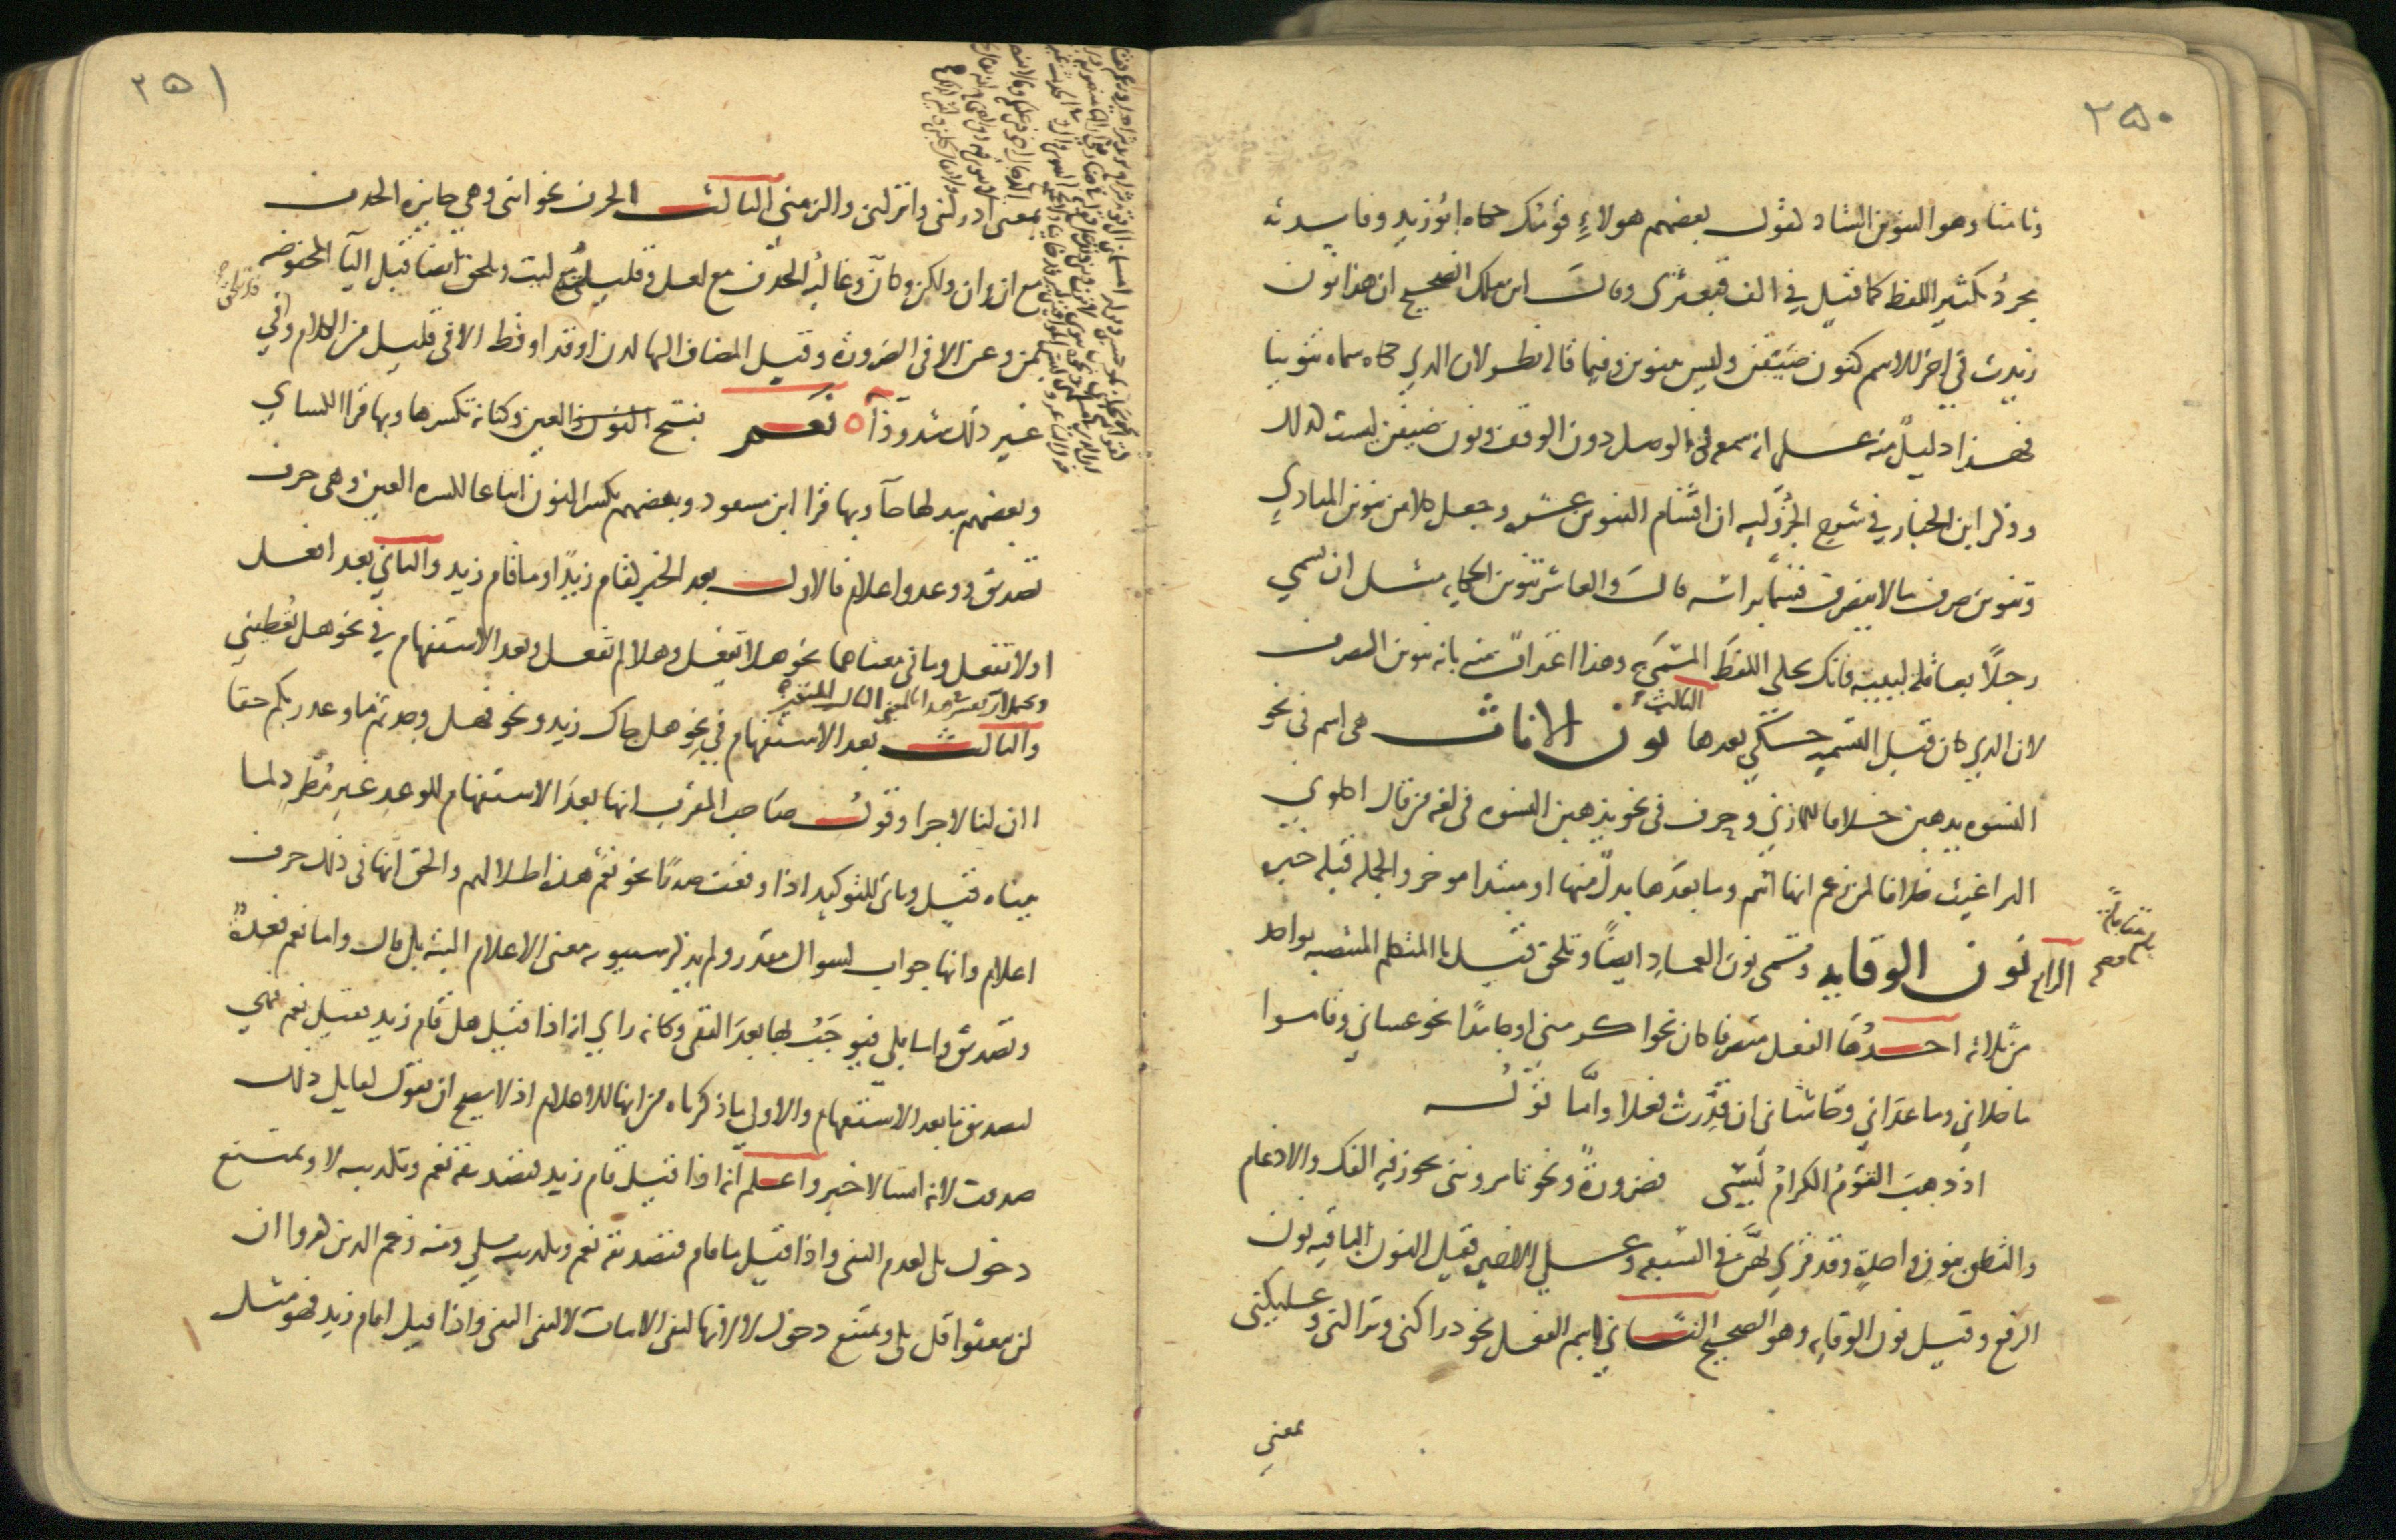 ٢٥٠
وثامنا وهو التنوين الشاد كقول بعضهم هولاءٍ قومك حكاه ابو زيد وفايدته
مجردُ تكثير اللفظ كما قيل في الف قبعثرى وقال ابن ملك الصحيح ان هذا نون
زيدت في اخر الاسم كنون ضيفن وليس بتنوين وفيما قاله نظر لان الذي حكاه سماه تنوينا
فهذا دليلٌ منه على انه سمعه في الوصل دون الوقف ونون ضيفن ليست كذلك
وذكر ابن الخباز في شرح الجزولية ان اقسام التنوين عشرة وجعل كلا من تنوين المنادي
وتنوين صرف ما لا ينصرف قسما براسه قال والعاشر تنوين الحكاية مثل ان تسمي
رجلاً بعاقلة لبيبة فانك تحكي اللفظ المسمى به وهذا اعتراف منه بانه تنوين الصرف
لان الذي كان قبل التسمية حكي بعدها الثالث نون الاناث هي اسم في نحو
النسوة يذهبن خلافا للمازني وحرف في نحو يذهبن النسوة في لغة من قال اكلوني
البراغيث خلافا لمن زعم انها اسم وما بعدها بدلٌ منها او مبتدا موخر والجملة قبله خبره
الرابع نون الوقاية وتسمى نون العماد ايضاً وتلحق قبل يا المتكلم المنتصبة بواحد
من ثلاثة احدها الفعل متصرفا كان نحو اكرمني او جامداً نحو عساني وقاموا
ما خلاني وما عداني وحاشاني ان قدّرت فعلا وامّا قوله
اذ ذهب القومُ الكرامُ ليسي فضرورةٌ ونحو تامرونني يجوز فيه الفك والادغام
والنطق بنون واحدة وقد قرئ بهنّ في السبعة وعلى الاخير فقيل النون الباقية نون
الرفع وقيل نون الوقاية وهو الصحيح الثاني اسم الفعل نحو دراكني وتراكني وعليكني
بمعني
٢٥١
بمعنى ادركني واتركني والزمني الثالث الحرف نحو انني وهي جايزة الحذف
مع ان وان ولكن وكأن وغالبة الحذف مع لعل وقليلته مع ليت وتلحق ايضا قبل اليآ المخفوضة
بمن وعن الا في الضرورة وقبل المضاف اليها لدن او قد او قط الا في قليل من الكلام وفي
غير ذلك شذوذاً ه نعم بفتح العين وكنانة تكسرها وبها قرا الكساي
وبعضهم يبدلها حآ وبها قرا ابن مسعود وبعضهم يكسر النون اتباعا لكسرة العين وهي حرف
تصديق ووعد واعلام فالاول بعد الخبر كقام زيدٌ او ما قام زيد والثاني بعد افعل
او لا تفعل وما في معناهما نحو هلا تفعل وهلا لم تفعل وبعد الاستفهام في نحو هل تعطيني
والثالث بعد الاستفهام في نحو هل جاك زيد ونحو فهل وجدتم ما وعد ربكم حقا
اان لنا لاجرا وقول صاحب المقرب انها بعد الاستفهام للوعد غير مُطّرد لما
بيناه قيل وتاتي للتوكيد اذا وقعت صدرًا نحو نعم هذه اطلالهم والحق انها في ذلك حرف
اعلام وانها جواب لسوال مقدر ولم يذكر سيبويه معنى الاعلام البتة بل قال واما نعم فعدةٌ
وتصديق واما بلى فيوجب بها بعد النفي وكانه راي انه اذا قيل هل قام زيد فقيل نعم فهي
لتصديق ما بعد الاستفهام والاولى ما ذكرناه من انها للاعلام اذ لا يصح ان تقول لقايل ذلك
صدقت لانه انشا لا خبر واعلم انه اذا قيل قام زيد فتصديقه نعم وتكذيبه لا ويمتنع
دخول بلى لعدم النفي واذا قيل ما قام فتصديقه نعم وتكذيبه بلى ومنه زعم الذين كفروا ان
لن يبعثوا قل بلى ويمتنع دخول لا لانها لنفي الاثبات لا لنفي النفي واذا قيل اقام زيد فهو مثل